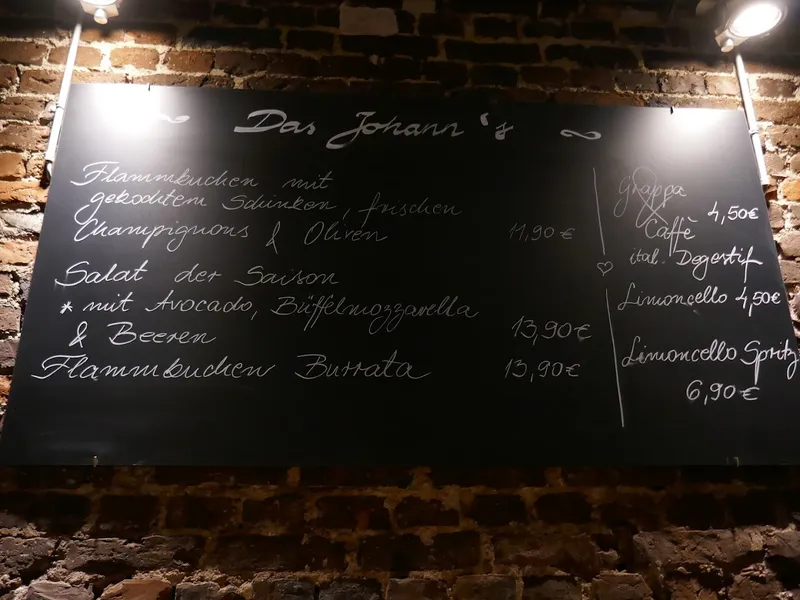 Das Johann's
Flammkuchen mit
gekochtem Schinken, frischen
Champignons & Oliven 11,90 €
Salat der Saison
* mit Avocado, Büffelmozzarella
& Beeren 13,90€
Flammkuchen Burrata 13,90€
Grappa
& 4,50€
Caffè
ital. Degestif
Limoncello 4,50€
Limoncello Spritz
6,90€